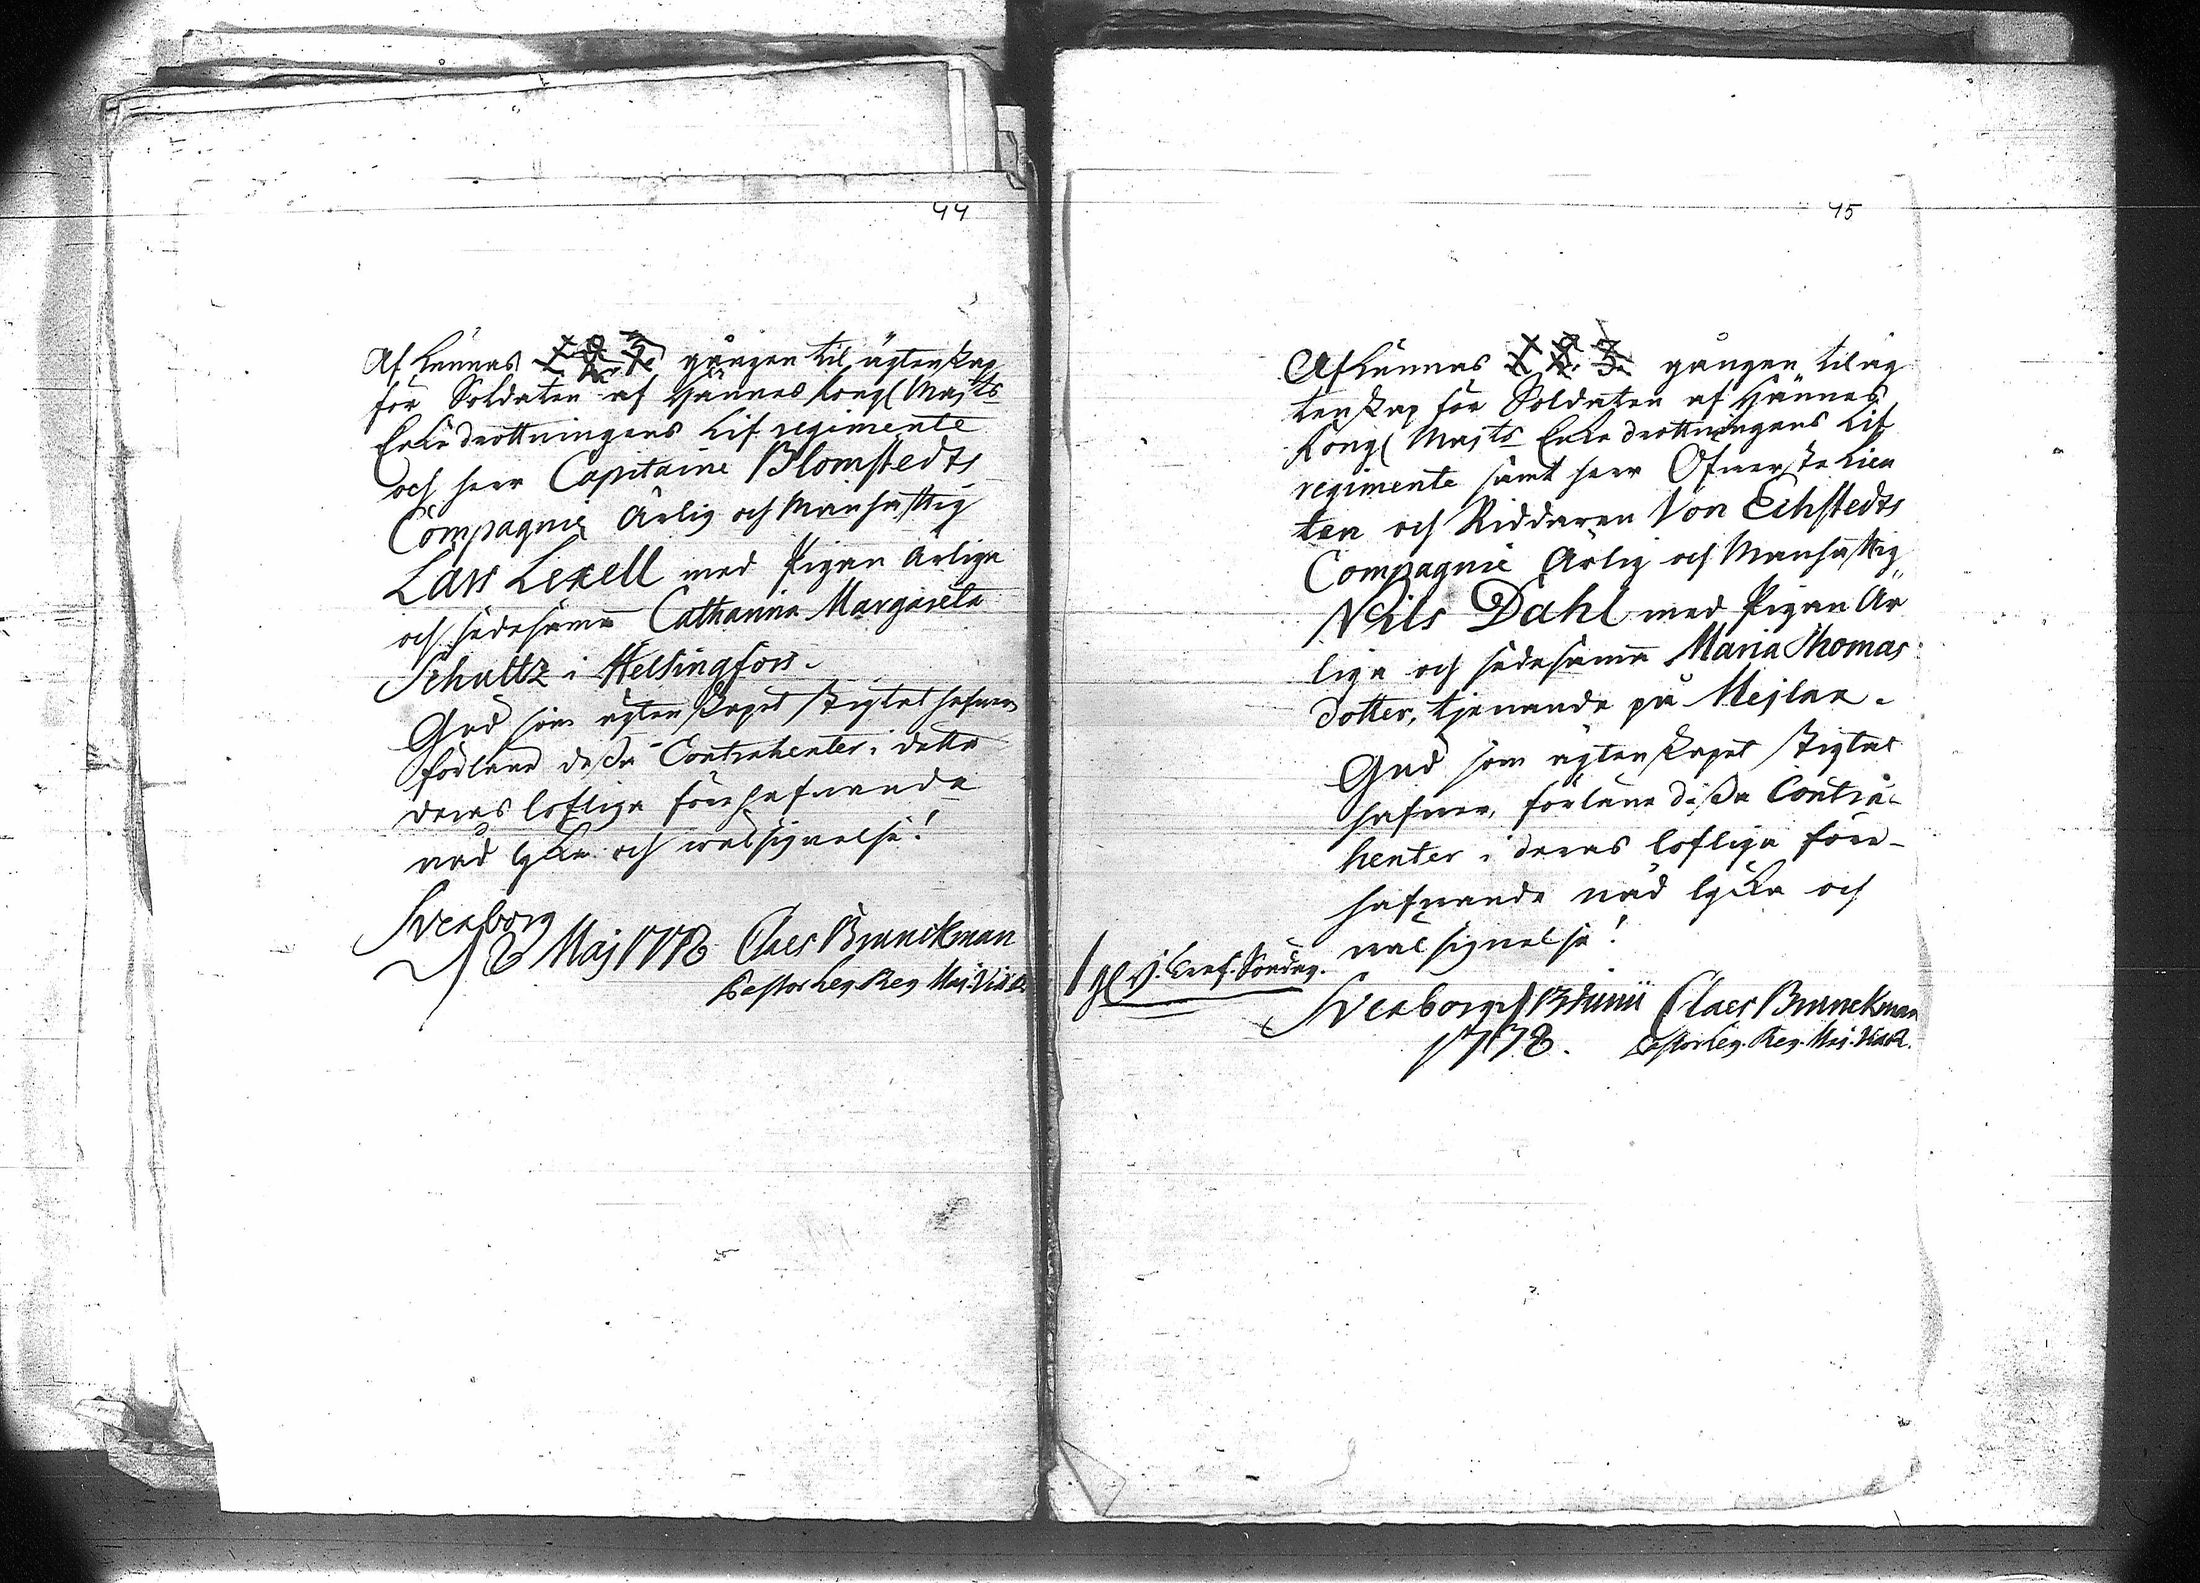 44
Aflÿsas 1. 2. 3. gången til ägtenskap
för Soldaten af Hännes Kongl Majts
Enkedrottningens Lif regimente
och herr Capitaine Blomstedts
Compagnie Ärlig och Manhaftig
Lars Lexell med Pigan Ärliga
och sedesamma Catharina Margareta
Schultz i Helsingfors.
Gud som ägtenskapet stigtat hafwer
förläne dessa Contrahenter i detta
deras lofliga förehafwande
nåd lycka och wälsignelse!
Sveaborg
d 8 Maj 1778 Claes Brunckman
Pastor Leg. Reg. Maj. Vid.
45
gången til äg
tenskap för Soldaten af Hännes
Kongl Majts Enkedrottningens Lif
regimente samt herr Öfwerste Lieu
ten och Riddaren Von Echstedts
Compagnie Ärlig och Manhaftig
Nils Dahl med Pigan Är
liga och sedesamma Maria Thomas
dotter, tjenande på Mejlax.
Gud som ägtenskapet stigtat
hafwer, förläne dessa Contra-
henter i deras lofliga före-
hafwande nåd lycka och
wälsignelse!
Söndag.
Sveaborg d Junii Claes Brunckman
1778. Pastor Leg. Reg. Maj. Vid.